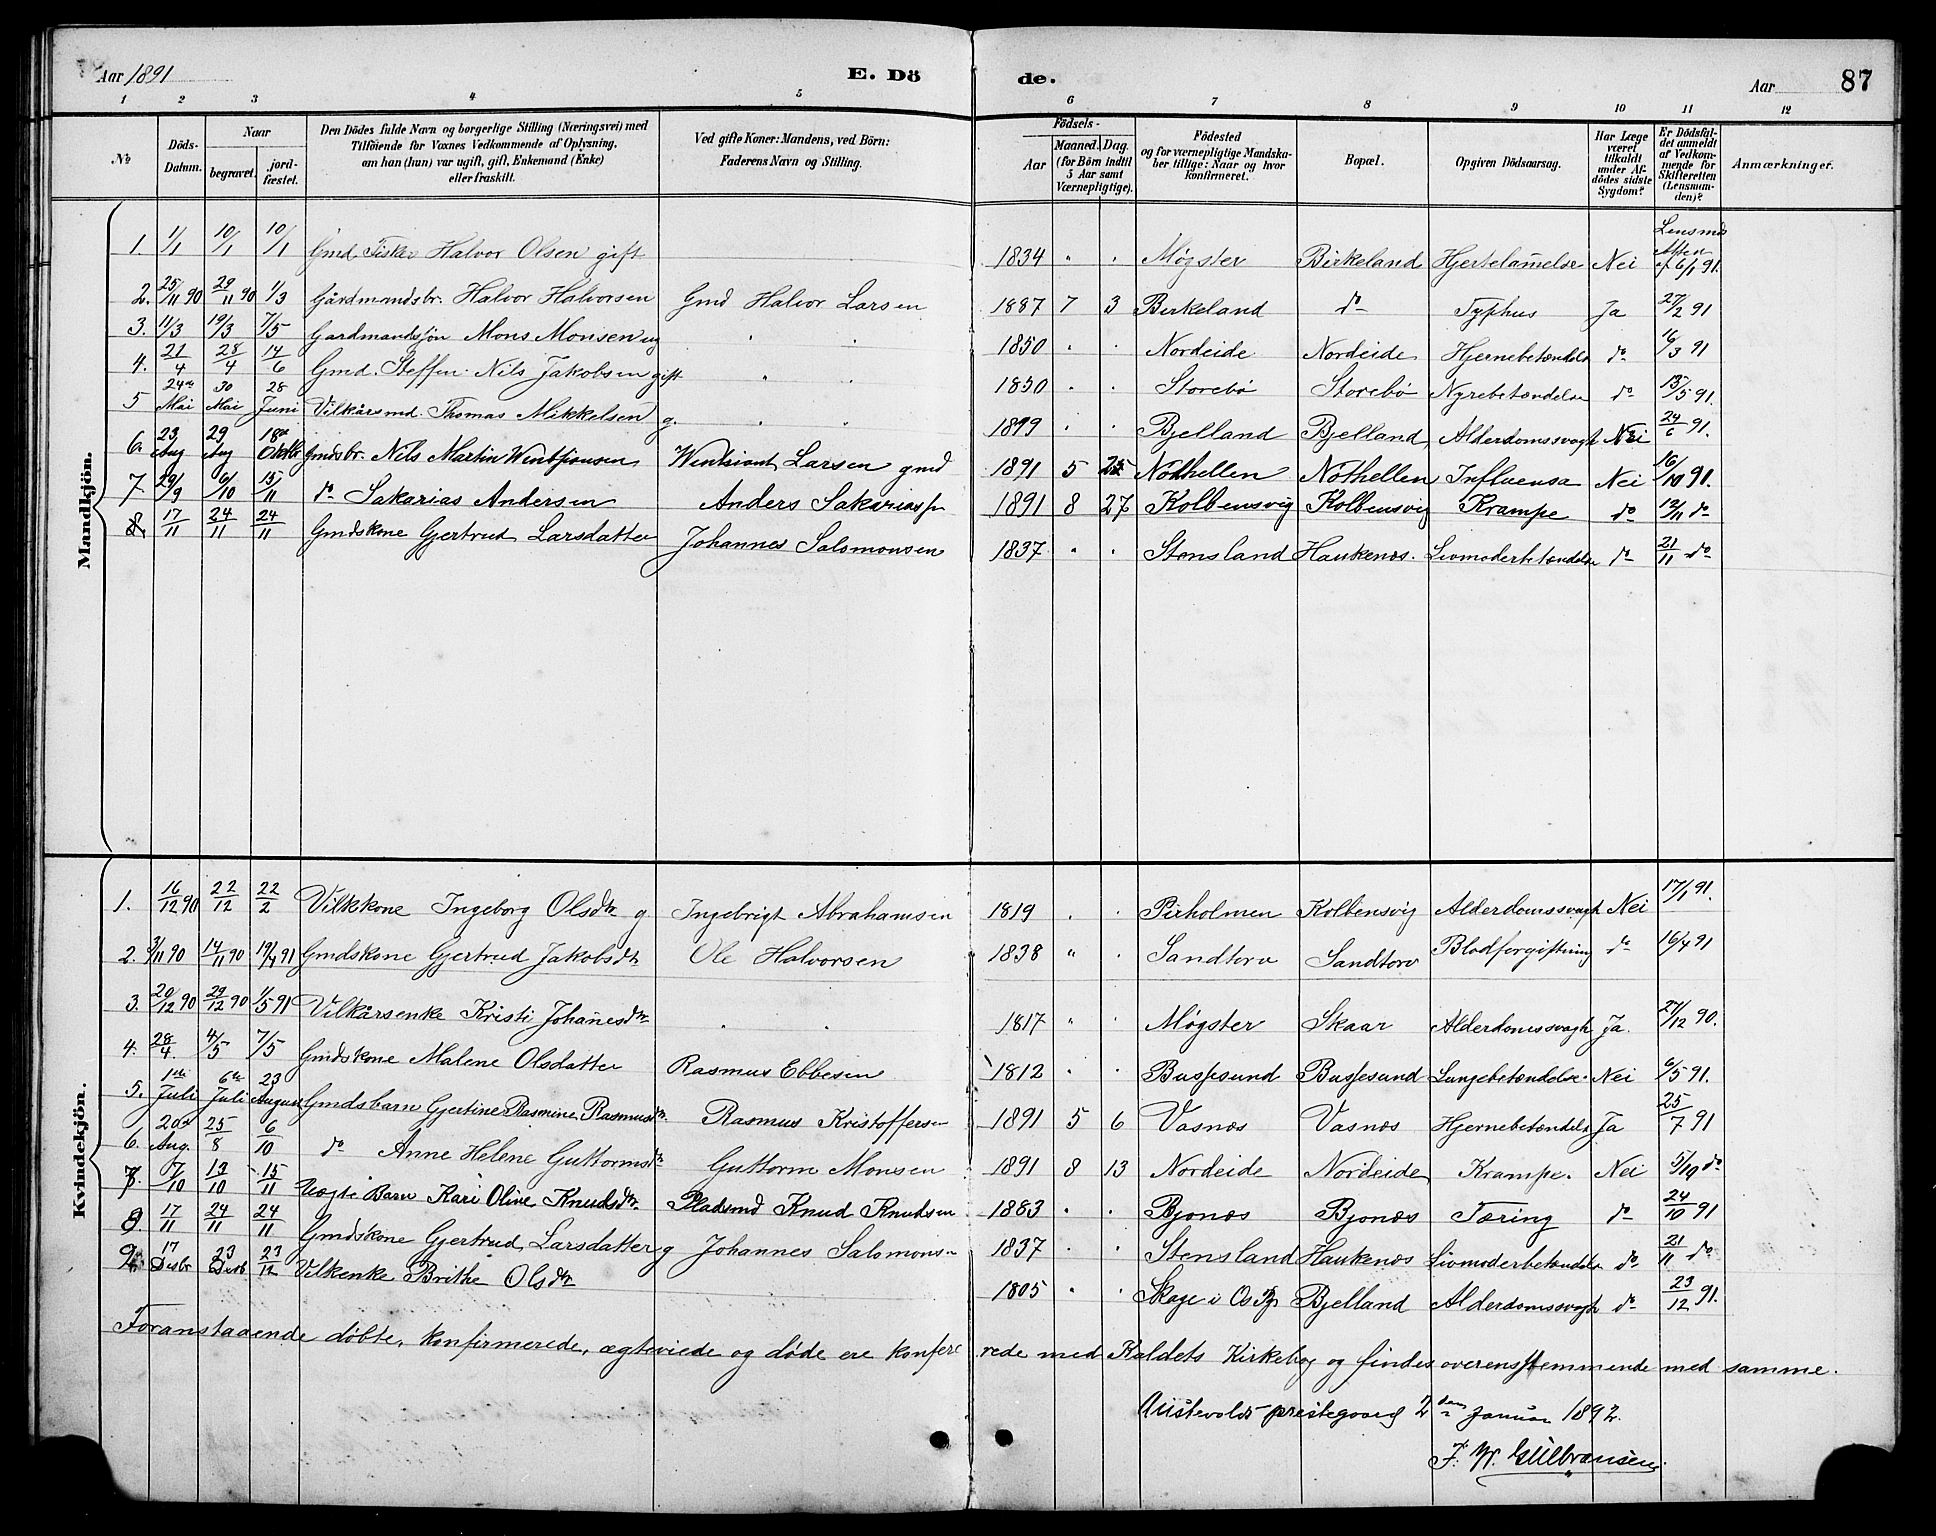 Aar 1891 E. Döde. Aar 87
1 2 3 4 5 6 7 8 9 10 11 12
No Döds-Datum. Naar begravet. jordfæstet. Den Dödes fulde Navn og borgerlige Stilling (Næringsvei) med Tilföiende for Voxnes Vedkommende af Oplysning, om han (hun) var ugift, gift, Enkemand (Enke) eller fraskilt. Ved gifte Koner: Mandens, ved Börn: Faderens Navn og Stilling. Födsels- Aar Maaned. Dag. (for Börn indtil 5 Aar samt Værnepligtige). Födested og for værnepligtige Mandskaber tillige: Naar og hvor konfirmeret. Bopæl. Opgiven Dödsaarsag. Har Læge været tilkaldt under Afdödes sidste Sygdom? Er Dödsfaldet anmeldt af Vedkommende for Skifteretten (Lensmanden)? Anmærkninger.
Mandkjön.
1. 1/1 10/1 10/1 Gmd. Fisker Halvor Olsen gift 1834 " " Møgster Birkeland Hjertelamelse Nei Lensmds Atten ef 6/1 91.
2. 25/11 90 29/11 90 1/3 Gårdmandsbr. Halvor Halvorsen Gmd Halvor Larsen 1887 7 3 Birkeland do Typhus Ja 27/2 91
3. 11/3 19/3 7/5 Gardmandssøn Mons Monsen ug " " 1850 " " Nordeide Nordeide Hjernebetændelse do 16/3 91
4. 21/4 28/4 14/6 Gmd. Steffen Nils Jakobsen gift " " 1850 " " Storebø Storebø Nyrebetændelse do 13/5 91.
5 24de Mai 30 Mai 28 Juni Vilkårsmd. Thomas Mikkelsen g. " " " " Bjelland Bjelland Alderdomssvagh Nei 24/6 91.
6. 23 Aug 29 Aug 18de Oktbr Gmdsbr. Nils Martin Larsen gmd 1891 5 25 Nothellen Nothellen Influensa Nei 16/10 91.
7 29/9 6/10 15/11 do Sakarias Andersen Anders Sakariass. 1891 8 27 Kolbensvig Kolbensvig Krampe do 12/11 do
8 17/11 24/11 24/11 Gmdskone Gjertrud Larsdatter Johannes Salomonsen 1837 " " Stensland Haukenæs. Livmoderbetændelse do 21/11 do
Kvindekjön.
1. 16/12 90 22/12 22/2 Vilkkone Ingeborg Olsdtr g Ingebrigt Abrahamsen 1819 " " Pirholmen Kolbensvig Alderdomssvagh Nei 17/1 91.
2. 3/11 90 14/11 90 19/4 91 Gmdskone Gjertrud Jakobsdtr Ole Halvorsen 1838 " " Sandtorv Sandtorv Blodforgiftning do 16/4 91
3. 20/12 90 29/12 90 1/5 91 Vilkårsenke Kristi Johanesdtr " " 1817 " " Møgster Skaar Alderdomssvagh Ja. 27/12 90.
4. 28/4. 4/5 7/5 Gmdskone Malene Olsdatter Rasmus Ebbesen 1812 " " Bussesund Bussesund Lungebetændelse. Nei 6/5 91.
5. 1ste Juli 6te Juli 23 August Gmdsbarn Gjertine Rasmine Rasmusdtr. Rasmus Kristoffersen 1891 5 6 Vasnæs Vasnæs Hjernebetændels Ja 25/7 91
6. 20de Aug. 25/8 6/10 do Anne Helene Guttormsdtr Guttorm Monsen 1891 8 13 Nordeide Nordeide Krampe. Nei 5/10 do
7. 7/10 13/10 15/11 Uægte Barn Kari Oline Knudsdtr. Pladsmd Knud Knudsen 1883 " " Bjonæs Bjonæs Tæring do 24/10 91
8. 17/11 24/11 24/11 Gmdskone Gjertrud Larsdatter g Johannes Salomons. 1837 " " Stensland Haukenæs Livmoderbetændels do 21/11 do
9. 17 Desbr 23 Desb 23/12 Vilkenke Brithe Olsdtr 1805 " " Skage i Os Pgj Bjelland Alderdomssvagh do 23/12 91.
Foranstaaende døbte, konfirmerede, ægteviede og døde ere konfererede med Kaldets Kirkebog og findes overensstemmende med samme.
Austevolds prestegaard 2den Januar 1892.
F. W. Gulbransen.